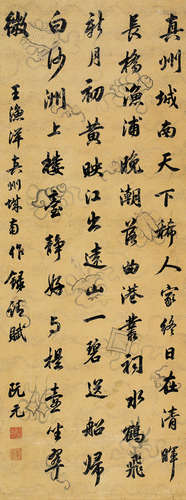 真州城南天下稀人家終日在清暉
長橋漁浦晚潮落曲港叢祠水鶴飛
新月初黃映江出遠山一碧送船歸
白沙洲上樓臺靜好與提壺坐翠
微
王漁洋真州城南作 錄請賦
阮元